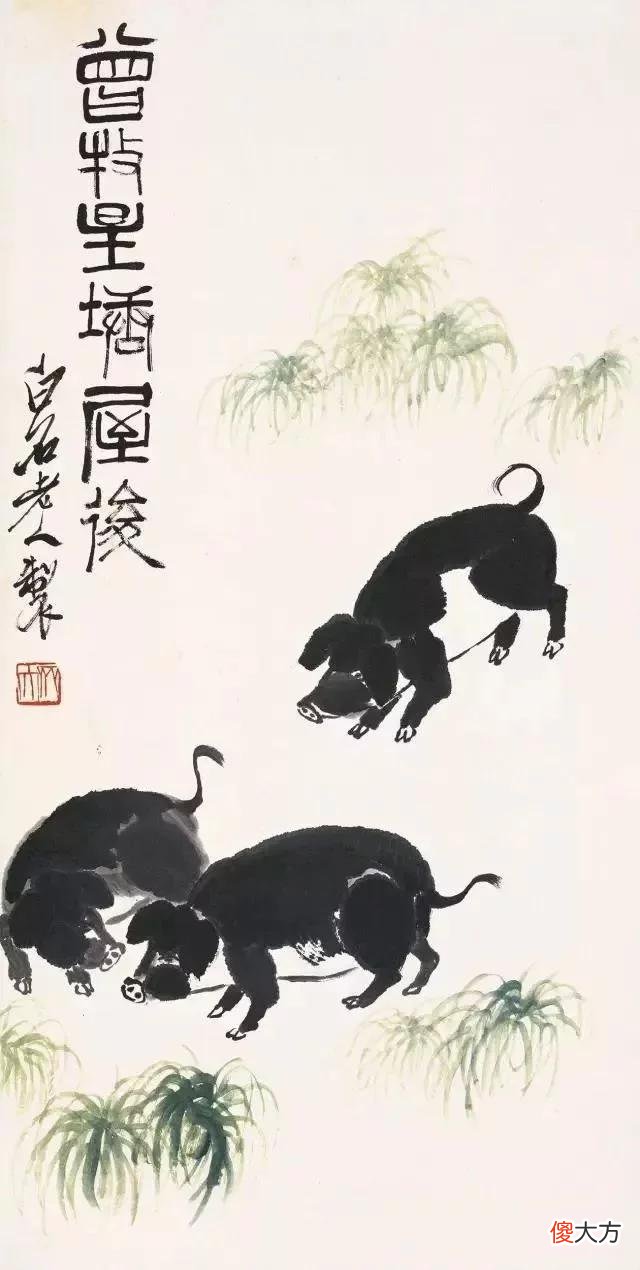 曾牧星塘屋後
白石老人製
傻大方